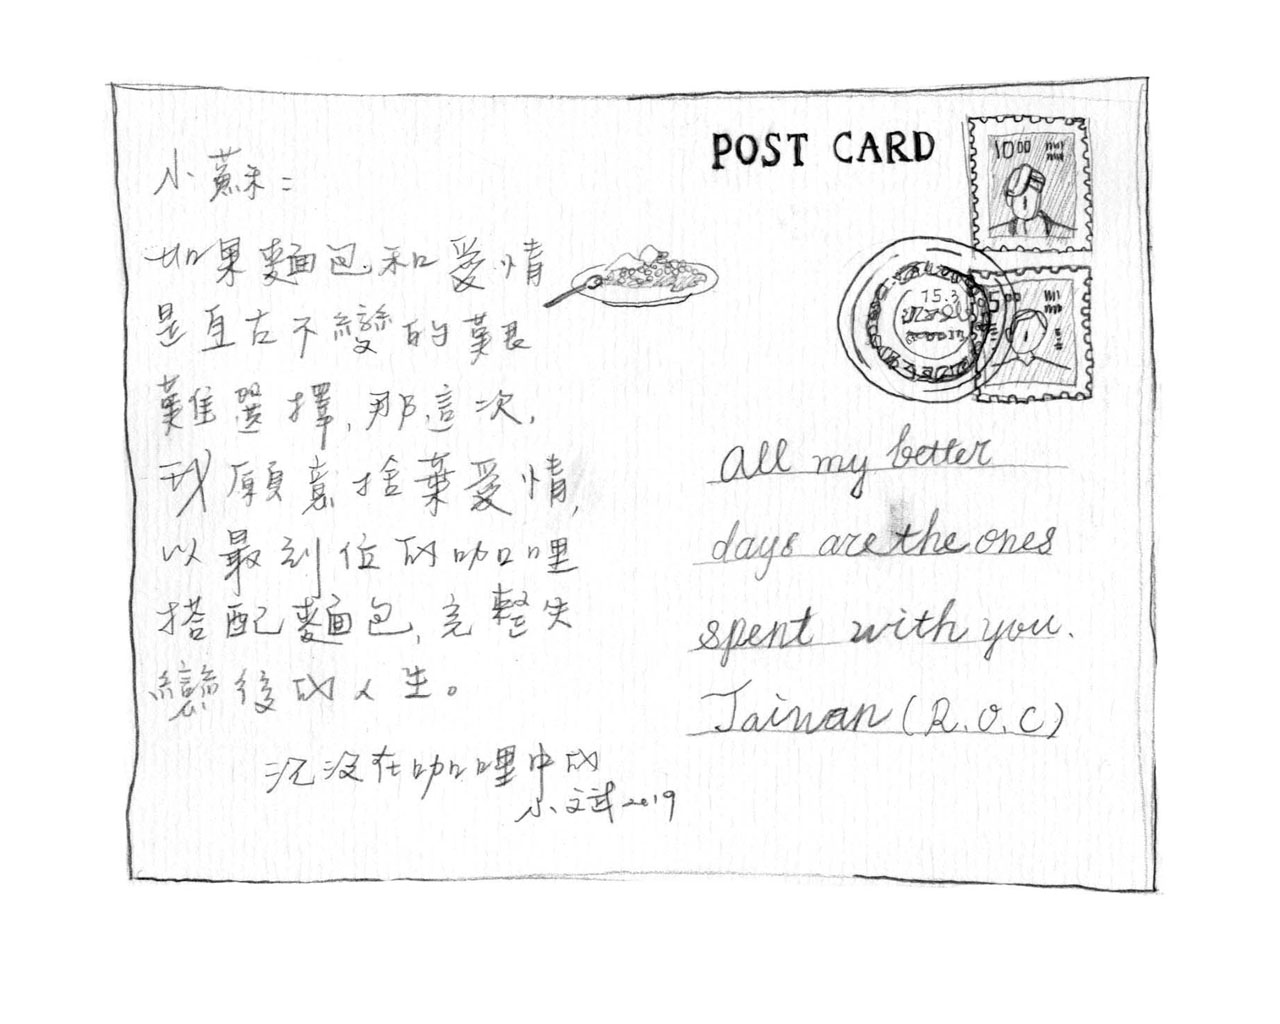 POST CARD
10⁰⁰
小蘇：
如果麵包和愛情
是亙古不變的艱
難選擇，那這次，
我願意捨棄愛情，
以最到位的咖哩
搭配麵包，完整失
戀後的人生。
沉沒在咖哩中的
小斌 2019
15.3
5⁰⁰
All my better
days are the ones
spent with you.
Taiwan (R.O.C)